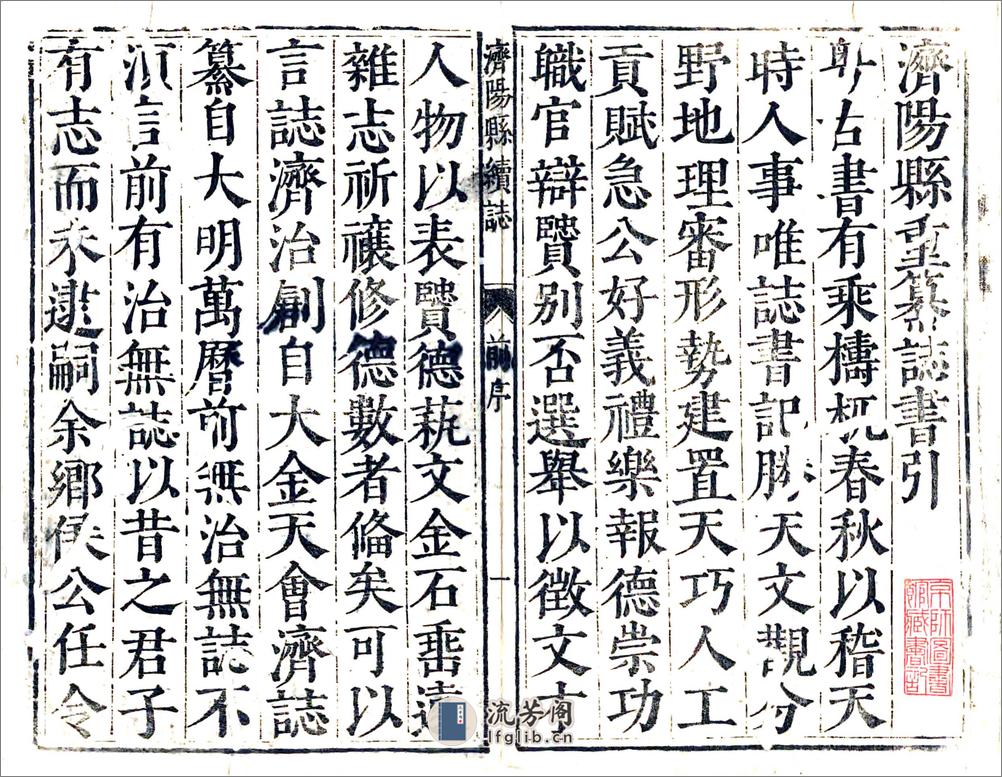 濟陽縣重纂誌書引
古書有乘檮杌春秋以稽天
時人事唯誌書記勝天文觀分
野地理審形勢建置天巧人工
貢賦急公好義禮樂報德崇功
職官辯賢别否選舉以徵文才
人物以表賢德蓺文金石垂遠
雜志祈禳修德數者俻矣可以
言誌濟治創自大金天會濟誌
纂自大明萬曆前無治無誌不
湏言前有治無誌以昔之君子
有志而未逮嗣余鄉侯公任令
濟陽縣續誌
前序
一
流芳阁
lfglib.cn